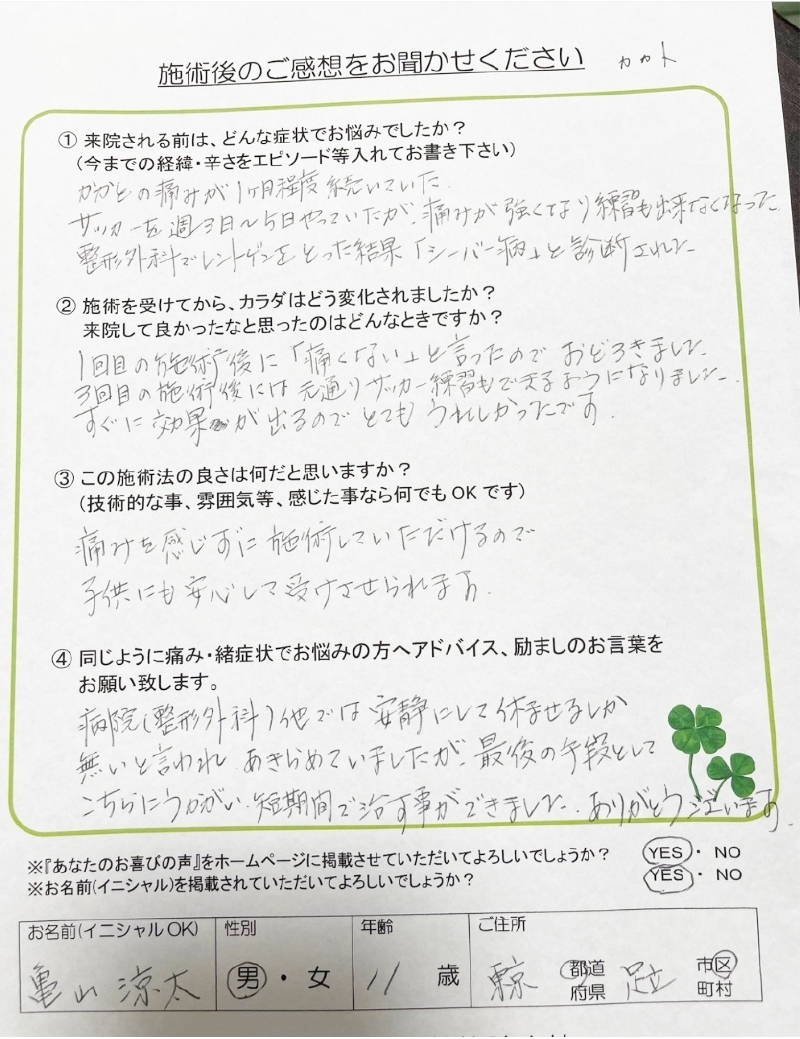 施術後のご感想をお聞かせください カカト
① 来院される前は、どんな症状でお悩みでしたか？
(今までの経緯・辛さをエピソード等入れてお書き下さい)
かかとの痛みが1ヶ月程度続いていた.
サッカーを週3日〜5日やっていたが、痛みが強くなり練習も出来なくなった.
整形外科でレントゲンをとった結果「シーバー病」と診断された
② 施術を受けてから、カラダはどう変化されましたか？
来院して良かったなと思ったのはどんなときですか？
1回目の施術後に「痛くない」と言ったので おどろきました.
3回目の施術後には元通りサッカー練習もできるようになりました.
すぐに効果が出るので とても うれしかったです.
③ この施術法の良さは何だと思いますか？
(技術的な事、雰囲気等、感じた事なら何でもOKです)
痛みを感じずに施術していただけるので
子供にも安心して受けさせられます.
④ 同じように痛み・緒症状でお悩みの方へアドバイス、励ましのお言葉を
お願い致します。
病院(整形外科)他では安静にして休ませるしか
無いと言われ、あきらめていましたが、最後の手段として
こちらにうかがい、短期間で治す事ができました. ありがとうございます.
※『あなたのお喜びの声』をホームページに掲載させていただいてよろしいでしょうか？ YES・NO
※お名前(イニシャル)を掲載されていただいてよろしいでしょうか？ YES・NO
お名前(イニシャルOK) 性別 年齢 ご住所
亀山 涼太 男・女 11 歳 東京 都道 足立 市区
府県 町村